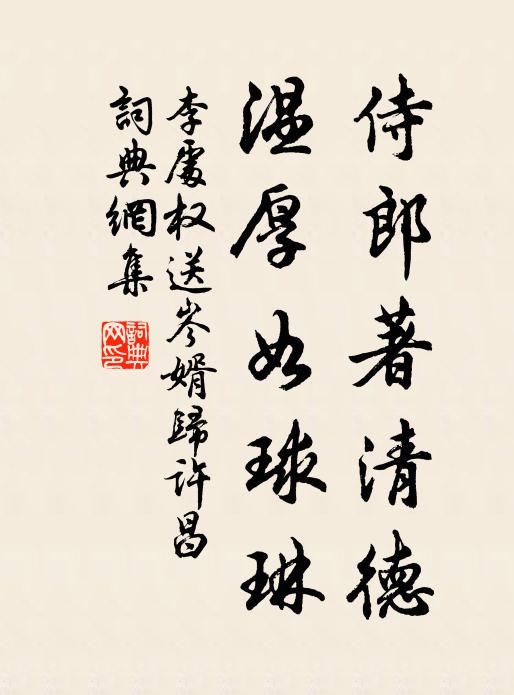 侍郎著清德
温厚如球琳
李處权送岑婿歸许昌
詞典網集
詞典網印